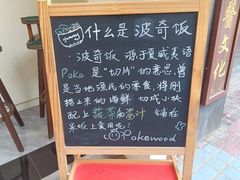 yummy
什么是波奇饭
·波奇饭 源于夏威夷语
Poke 是"切片"的意思,曾
是当地渔民的零食,将刚
捞上来的海鲜 切成小块
配上蔬菜和酱汁 铺在
米饭上食用吧!
Pokewood
文化